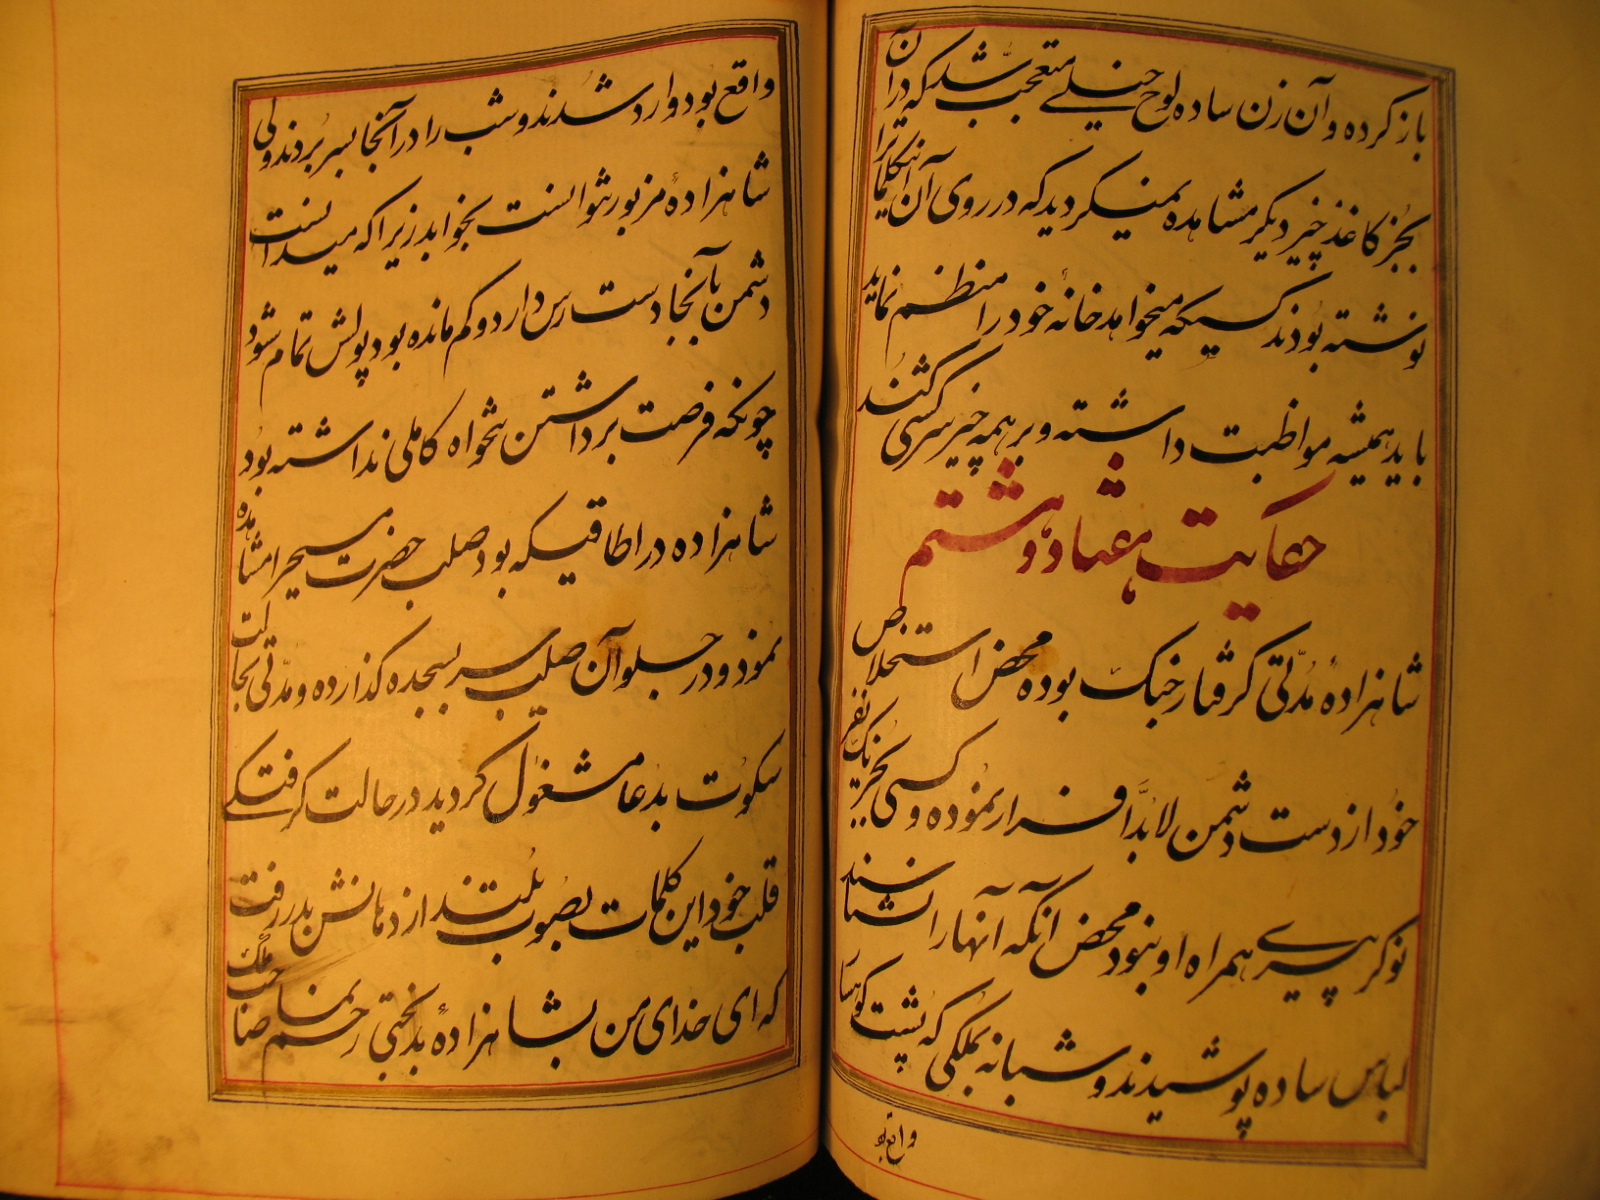 باز کرده و آن زن ساده لوح خیلی متعجب شد که در آن
بجز کاغذ چیز دیگر مشاهده نمیکردید که در روی آن اینکلمات را
نوشته بودند کسیکه میخواهد خانهٔ خود را منظم نماید
باید همیشه مواظبت داشته و بر همه چیز سرکشی کند
حکایت هفتاد و هشتم
شاهزادهٔ مدّتی گرفتار جنگ بوده محض استخلاص
خود از دست دشمن لابدّاً فرار نموده و کسی بجز یک نفر
نوکر پیری همراه او نبود محض آنکه آنها را نشناسند
لباس ساده پوشیدند و شبانه بملکی که پشت کوهها
واقع بود
واقع بود وارد شدند و شب را در آنجا بسر بردند ولی
شاهزادهٔ مزبور نتوانست بخوابد زیرا که میدانست
دشمن بآنجا دست رس دارد و کم مانده بود پولش تمام شود
چونکه فرصت برداشتن تنخواه کاملی نداشته بود
شاهزاده در اطاقیکه بود صلیب حضرت مسیح را مشاهده
نمود و در جلو آن صلیب سر بسجده گذارده و مدّتی بحالت
سکوت بدعا مشغول گردید در حالت گرفتگی
قلب خود این کلمات بصوت بلند از دهانش بدر رفت
که ای خدای من بشاهزادهٔ بدبختی رحم نما صاحب ملک